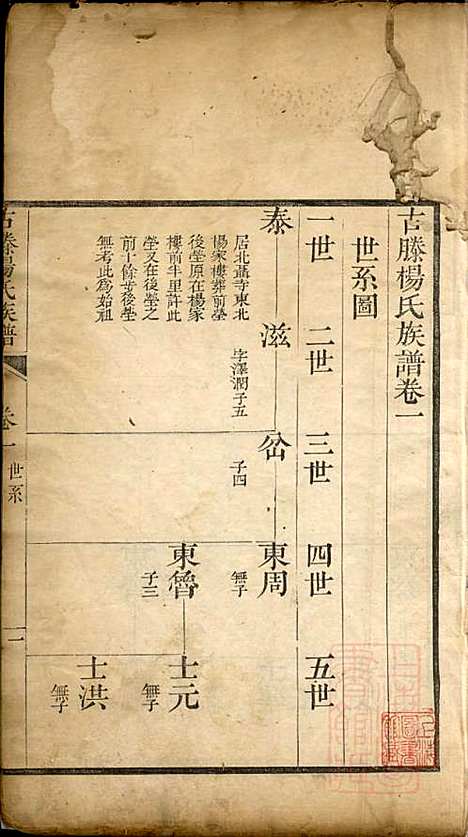 古滕楊氏族譜卷一
世系圖
一世 二世 三世 四世 五世
泰 滋 峃 東周
居北蓋寺東北
楊家樓葬前塋
後塋原在楊家
樓前半里許此
塋又在後塋之
前十餘步後塋
無考此為始祖
字澤潤子五
子四
無子
東魯 士元
子三
無子
士洪
無子
古滕楊氏族譜 卷一 世系 一